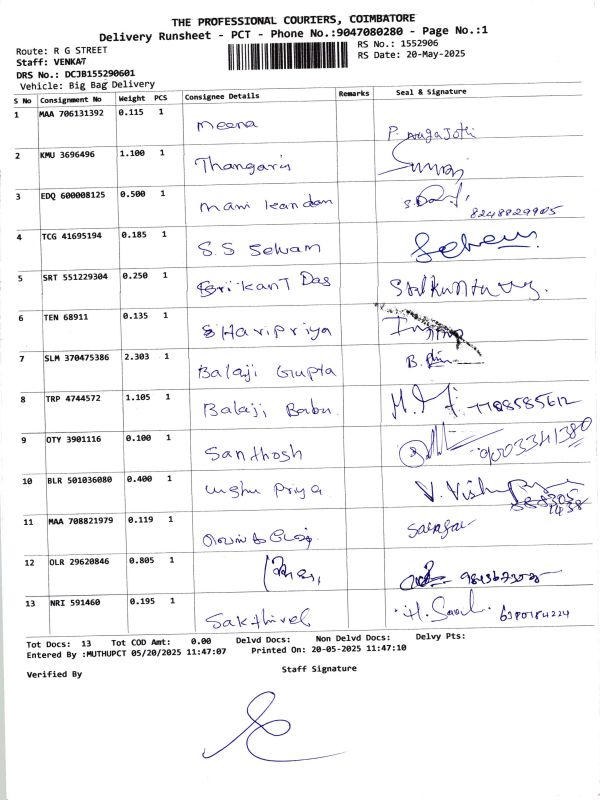 THE PROFESSIONAL COURIERS, COIMBATORE
Delivery Runsheet - PCT - Phone No.:9047080280 - Page No.:1
Route: R G STREET
RS No.: 1552906
Staff: VENKAT
RS Date: 20-May-2025
DRS No.: DCJB155290601
Vehicle: Big Bag Delivery
S No Consignment No Weight PCS Consignee Details Remarks Seal & Signature
1 MAA 706131392 0.115 1 Meena
2 KMU 3696496 1.100 1
3 EDQ 600008125 0.500 1 Mani kandan 8248829905
4 TCG 41695194 0.185 1 S.S Selvam Selvam
5 SRT 551229304 0.250 1 Srikant Das
6 TEN 68911 0.135 1 S Haripriya
7 SLM 370475386 2.303 1 Balaji Gupta
8 TRP 4744572 1.105 1 Balaji Babu
9 OTY 3901116 0.100 1 Santhosh 9003341380
10 BLR 501036080 0.400 1 Priya
11 MAA 708821979 0.119 1
12 OLR 29620846 0.805 1
13 NRI 591460 0.195 1 Sakthivel
Tot Docs: 13 Tot COD Amt: 0.00 Delvd Docs: Non Delvd Docs: Delvy Pts:
Entered By :MUTHUPCT 05/20/2025 11:47:07 Printed On: 20-05-2025 11:47:10
Verified By Staff Signature